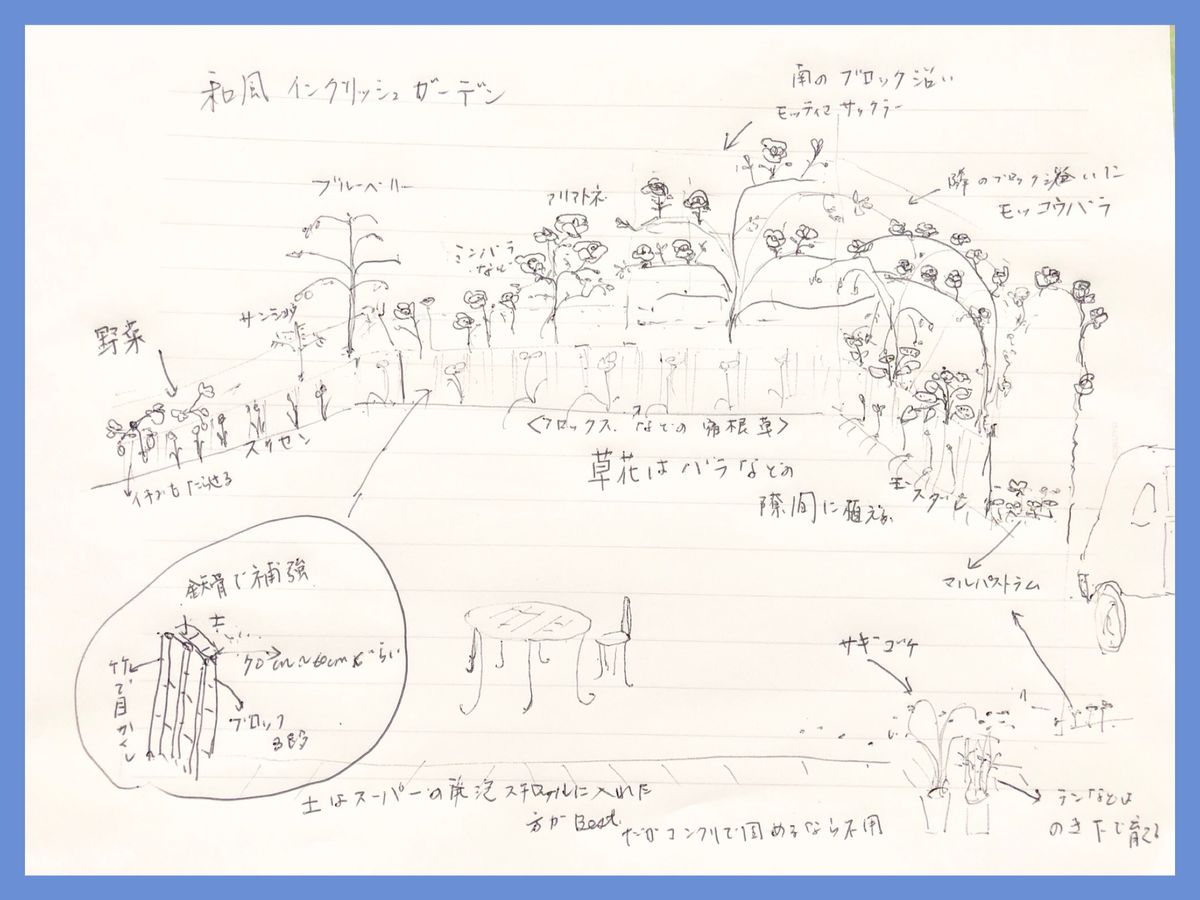 和風 イングリッシュガーデン
南のブロック沿い
モッティマ サックラー
隣のブロック沿いに
モッコウバラ
ブルーベリー
アリマトネ
ミニバラ
など
サンショウ
野菜
スイセン
イチゴも
<フロックス などの 宿根草>
草花はバラなどの
隙間に植える
マルバストラム
鉄骨で補強
土
竹で目かくし
ブロック
3段
サギゴケ
土はスーパーの発泡スチロールに入れた
方がBest.
だがコンクリで固めるなら不用
ランなどは
のき下で育てる